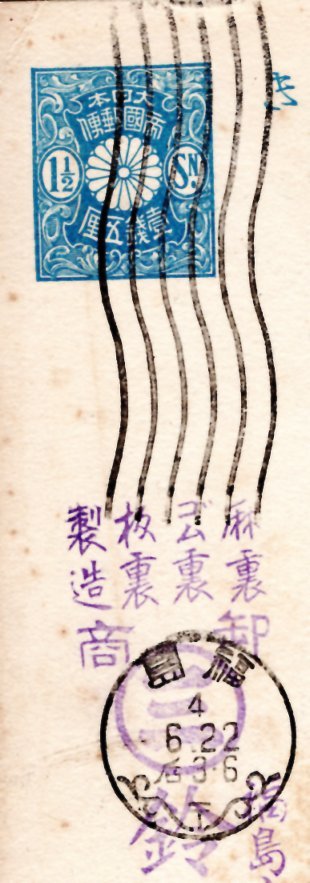 大日本
帝國郵便
1½
SN.
壹錢五厘
麻裏
云裏
板裏
製造
卸商
福島
4
6.22
后3-6
福島
鈴